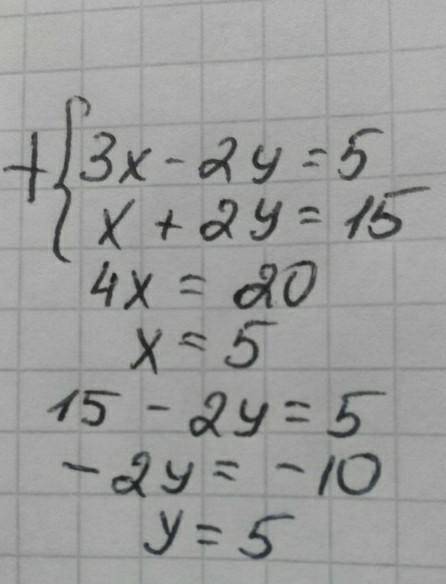 +{3x - 2y = 5
x + 2y = 15
4x = 20
x = 5
15 - 2y = 5
-2y = -10
y = 5